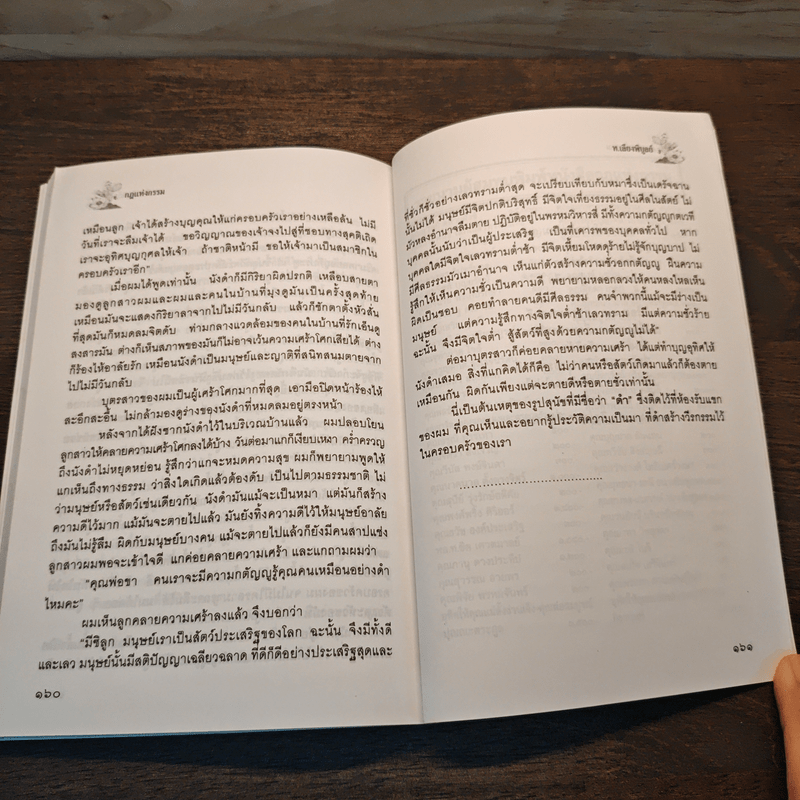 กฎแห่งกรรม
เหมือนลูก เจ้าได้สร้างบุญคุณให้แก่ครอบครัวเราอย่างเหลือล้น ไม่มี
วันที่เราจะลืมเจ้าได้ ขอวิญญาณของเจ้าจงไปสู่ที่ชอบทางสุคติเถิด
เราจะอุทิศบุญกุศลให้เจ้า ถ้าชาติหน้ามี ขอให้เจ้ามาเป็นสมาชิกใน
ครอบครัวเราอีก”
เมื่อผมได้พูดเท่านั้น นังดำก็มีกิริยาผิดปรกติ เหลือบสายตา
มองดูลูกสาวผมและผมและคนในบ้านที่มุงดูมันเป็นครั้งสุดท้าย
เหมือนมันจะแสดงกิริยาลาจากไปไม่มีวันกลับ แล้วก็ชักตาตั้งหัวสั่น
ที่สุดมันก็หมดลมจิตดับ ท่ามกลางแวดล้อมของคนในบ้านที่รักเอ็นดู
สงสารมัน ต่างก็เห็นสภาพของมันก็ไม่อาจเว้นความเศร้าโศกเสียได้ ต่าง
ก็ร้องไห้อาลัยรัก เหมือนนังดำเป็นมนุษย์และญาติที่สนิทสนมตายจาก
ไปไม่มีวันกลับ
บุตรสาวของผมเป็นผู้เศร้าโศกมากที่สุด เอามือปิดหน้าร้องไห้
สะอึกสะอื้น ไม่กล้ามองดูร่างของนังดำที่หมดลมอยู่ตรงหน้า
หลังจากได้ฝังซากนังดำไว้ในบริเวณบ้านแล้ว ผมปลอบโยน
ลูกสาวให้คลายความเศร้าโศกลงได้บ้าง วันต่อมาแกก็เงียบเหงา คร่ำครวญ
ถึงนังดำไม่หยุดหย่อน รู้สึกว่าแกจะหมดความสุข ผมก็พยายามพูดให้
แกเห็นถึงทางธรรม ว่าสิ่งใดเกิดแล้วต้องดับ เป็นไปตามธรรมชาติ ไม่
ว่ามนุษย์หรือสัตว์เช่นเดียวกัน นังดำมันแม้จะเป็นหมา แต่มันก็สร้าง
ความดีไว้มาก แม้มันจะตายไปแล้ว มันยังทิ้งความดีไว้ให้มนุษย์อาลัย
ถึงมันไม่รู้ลืม ผิดกับมนุษย์บางคน แม้จะตายไปแล้วก็ยังมีคนสาปแช่ง
ลูกสาวผมพอจะเข้าใจดี แกค่อยคลายความเศร้า และแกถามผมว่า
“คุณพ่อขา คนเราจะมีความกตัญญูรู้คุณคนเหมือนอย่างดำ
ไหมคะ”
ผมเห็นลูกคลายความเศร้าลงแล้ว จึงบอกว่า
“มีซิลูก มนุษย์เราเป็นสัตว์ประเสริฐของโลก ฉะนั้น จึงมีทั้งดี
และเลว มนุษย์นั้นมีสติปัญญาเฉลียวฉลาด ที่ดีก็ดีอย่างประเสริฐสุดและ
๑๖๐
ท.เลียงพิบูลย์
ที่ชั่วก็ชั่วอย่างเลวทรามต่ำสุด จะเปรียบเทียบกับหมาซึ่งเป็นเดรัจฉาน
นั้นไม่ได้ มนุษย์มีจิตปกติบริสุทธิ์ มีจิตใจเที่ยงธรรมอยู่ในศีลในสัตย์ ไม่
มัวหลงอำนาจลืมตาย ปฏิบัติอยู่ในพรหมวิหารสี่ มีทั้งความกตัญญูกตเวที
บุคคลนั้นนับว่าเป็นผู้ประเสริฐ เป็นที่เคารพของบุคคลทั่วไป หาก
บุคคลใดมีจิตใจเลวทรามต่ำช้า มีจิตเหี้ยมโหดดุร้ายไม่รู้จักบุญบาป ไม่
มีศีลธรรมมัวเมาอำนาจ เห็นแก่ตัวสร้างความชั่วอกตัญญู ฝืนความ
รู้สึกให้เห็นความชั่วเป็นความดี พยายามหลอกลวงให้คนหลงใหลเห็น
ผิดเป็นชอบ คอยทำลายคนดีมีศีลธรรม คนจำพวกนี้แม้จะมีร่างเป็น
มนุษย์ แต่ความรู้สึกทางจิตใจต่ำช้าเลวทราม มีแต่ความชั่วร้าย
ฉะนั้น จึงมีจิตใจต่ำ สู้สัตว์ที่สูงด้วยความกตัญญูไม่ได้”
ต่อมาบุตรสาวก็ค่อยคลายหายความเศร้า ได้แต่ทำบุญอุทิศให้
นังดำเสมอ สิ่งที่แกคิดได้ก็คือ ไม่ว่าคนหรือสัตว์เกิดมาแล้วก็ต้องตาย
เหมือนกัน ผิดกันเพียงแต่จะตายดีหรือตายชั่วเท่านั้น
นี่เป็นต้นเหตุของรูปสุนัขที่มีชื่อว่า “ดำ” ซึ่งติดไว้ที่ห้องรับแขก
ของผม ที่คุณเห็นและอยากรู้ประวัติความเป็นมา ที่ดำสร้างวีรกรรมไว้
ในครอบครัวของเรา
๑๖๑